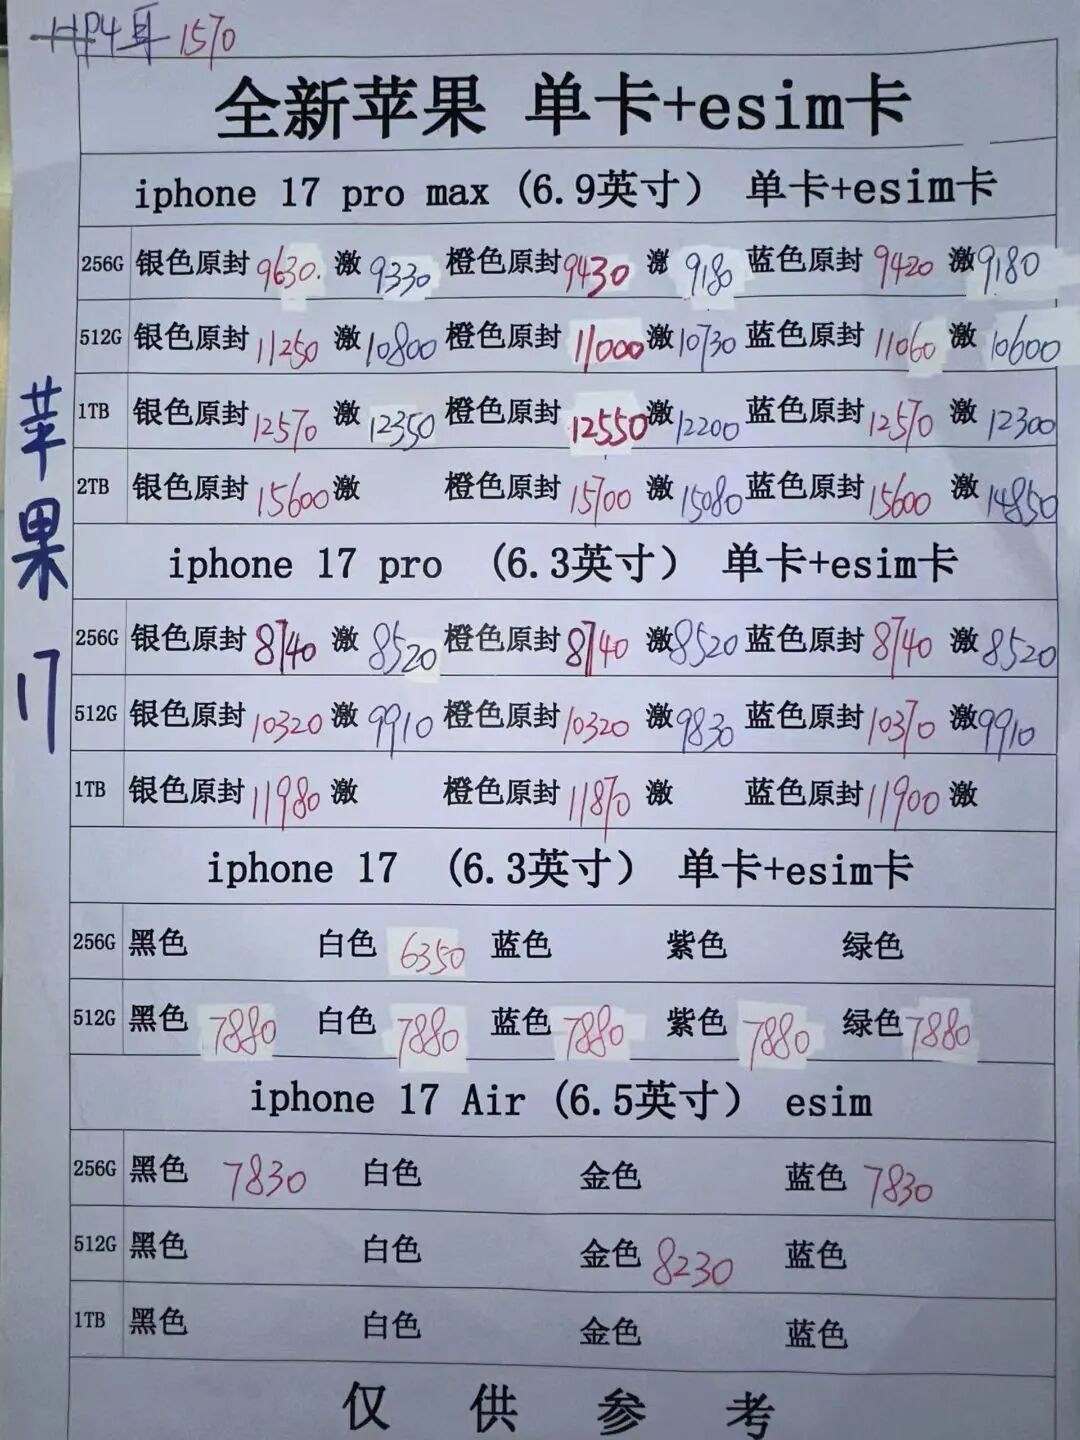 HP4耳 1570
全新苹果 单卡+esim卡
iphone 17 pro max (6.9英寸) 单卡+esim卡
256G 银色原封 9630. 激 9330 橙色原封 9430 激 9180 蓝色原封 9420 激 9180
512G 银色原封 11250 激 10800 橙色原封 11000 激 10730 蓝色原封 11060 激 10600
1TB 银色原封 12570 激 12350 橙色原封 12550 激 12200 蓝色原封 12570 激 12300
2TB 银色原封 15600 激 橙色原封 15700 激 15080 蓝色原封 15600 激 14850
iphone 17 pro (6.3英寸) 单卡+esim卡
256G 银色原封 8740 激 8520 橙色原封 8740 激 8520 蓝色原封 8740 激 8520
512G 银色原封 10320 激 9910 橙色原封 10320 激 9830 蓝色原封 10370 激 9910
1TB 银色原封 11980 激 橙色原封 11870 激 蓝色原封 11900 激
iphone 17 (6.3英寸) 单卡+esim卡
256G 黑色 白色 6350 蓝色 紫色 绿色
512G 黑色 7880 白色 7880 蓝色 7880 紫色 7880 绿色 7880
iphone 17 Air (6.5英寸) esim
256G 黑色 7830 白色 金色 蓝色 7830
512G 黑色 白色 金色 8230 蓝色
1TB 黑色 白色 金色 蓝色
仅供参考
苹果17